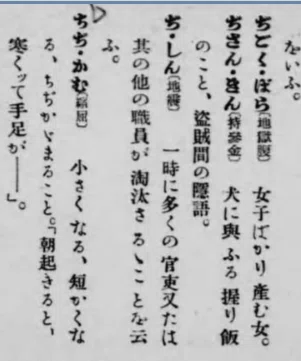 をいふ。
ぢごく・ばら〔地獄腹〕　女子ばかり産む女。
ぢさん・きん〔持參金〕　犬に與ふる握り飯
のこと、盜賊間の隱語。
ぢ・しん〔地震〕　一時に多くの官吏又たは
其の他の職員が淘汰さるゝことを云
ふ。
ちぢ・かむ〔縮屈〕　小さくなる、短かくな
る、ちぢかゞまること。「朝起きると、
寒くッて手足が――」。